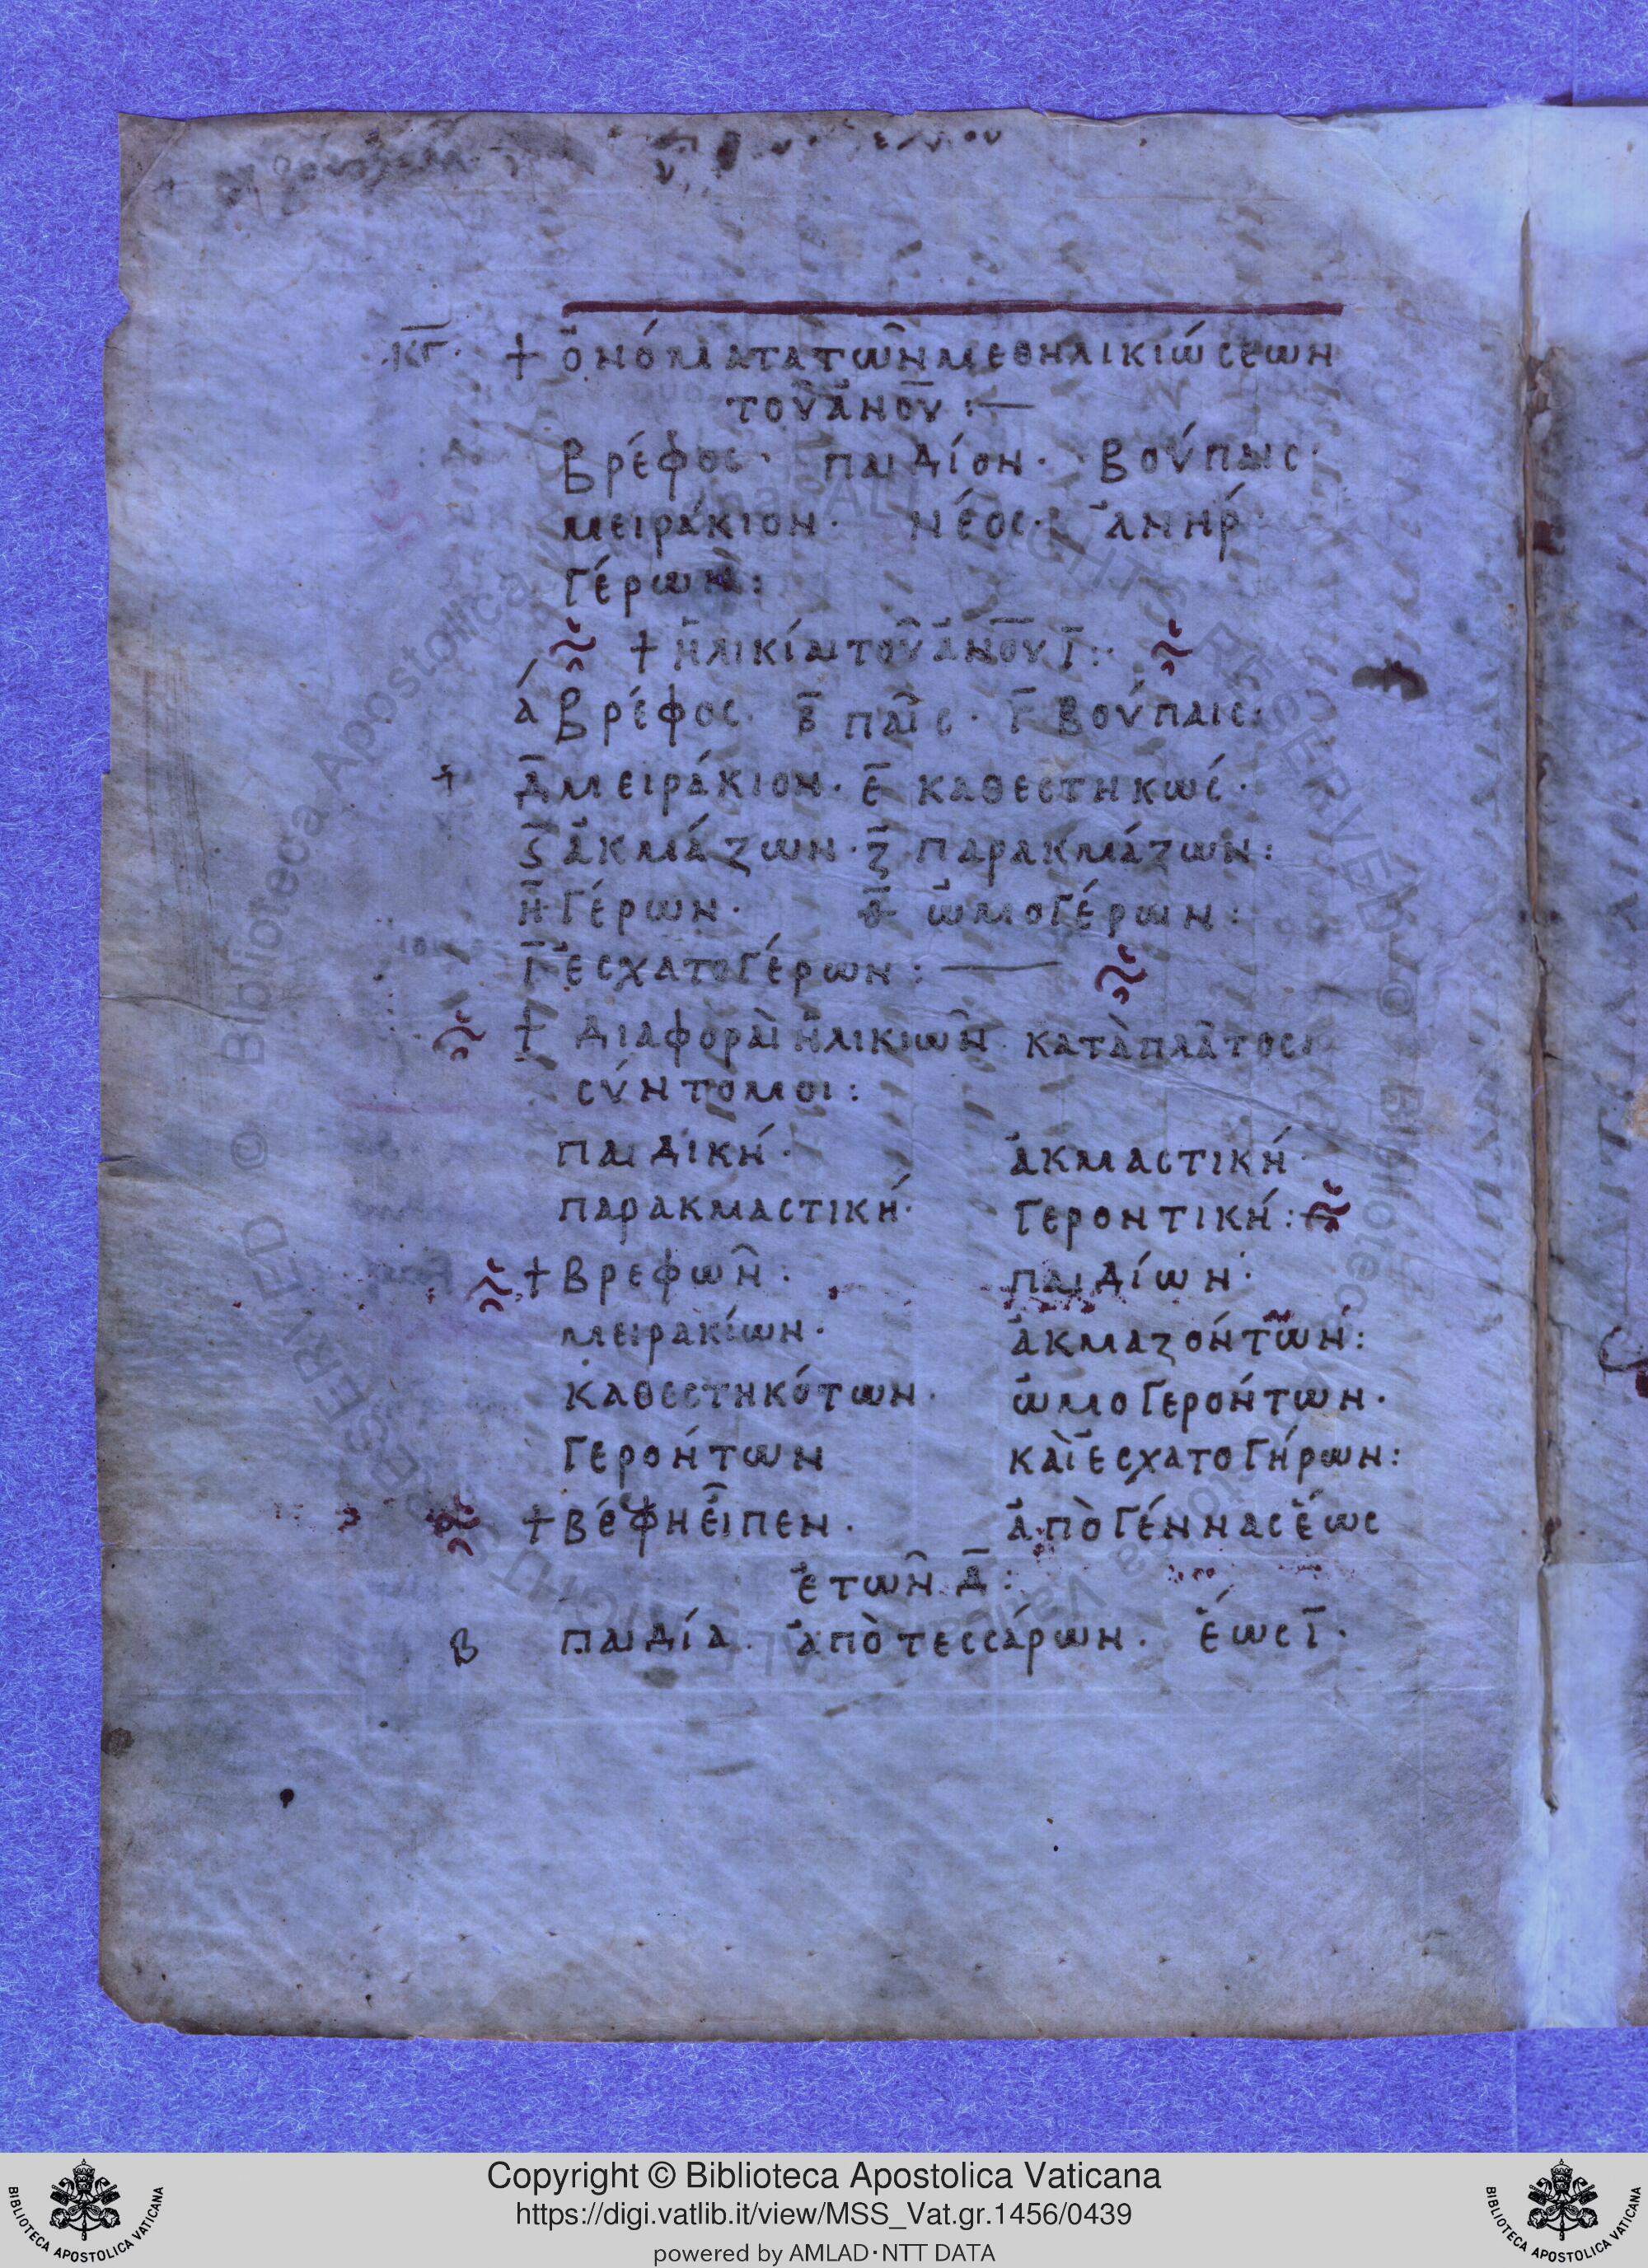 κγ + ὀνόματα τῶν μεθηλικιώσεων
τοῦ ἀνου :—
βρέφος · παιδίον · βούπαις ·
μειράκιον · νέος · ἀνήρ
γέρων :
+ ἡλικίαι τοῦ ἀνου ι :·
ά βρέφος · β παῖς · γ βούπαις :
δ μειράκιον · ε καθεστηκώς ·
ϛ ἀκμάζων · ζ παρακμάζων :
η γέρων · θ ὠμογέρων :
ι ἐσχατογέρων : —
+ διαφοραὶ ἡλικιῶν κατὰ πλάτος
σύντομοι :
παιδική · ἀκμαστική ·
παρακμαστική · γεροντική :
+ βρεφῶν · παιδίων ·
μειρακίων · ἀκμαζόντων :
καθεστηκότων · ὠμογερόντων ·
γερόντων καὶ ἐσχατογήρων :
+ βέφη εἶπεν · ἀπὸ γέννας ἕως
ἐτῶν δ :
β παιδία · ἀπὸ τεσσάρων · ἕως ι ·
Copyright © Biblioteca Apostolica Vaticana
https://digi.vatlib.it/view/MSS_Vat.gr.1456/0439
powered by AMLAD·NTT DATA